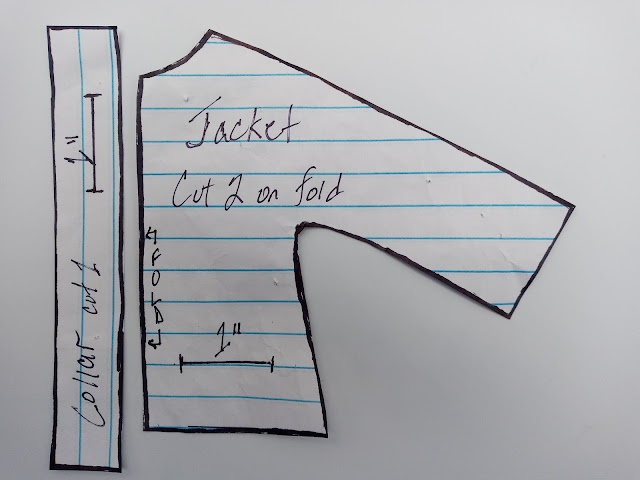 1"
Collar cut 1
Jacket
Cut 2 on fold
FOLD
1"